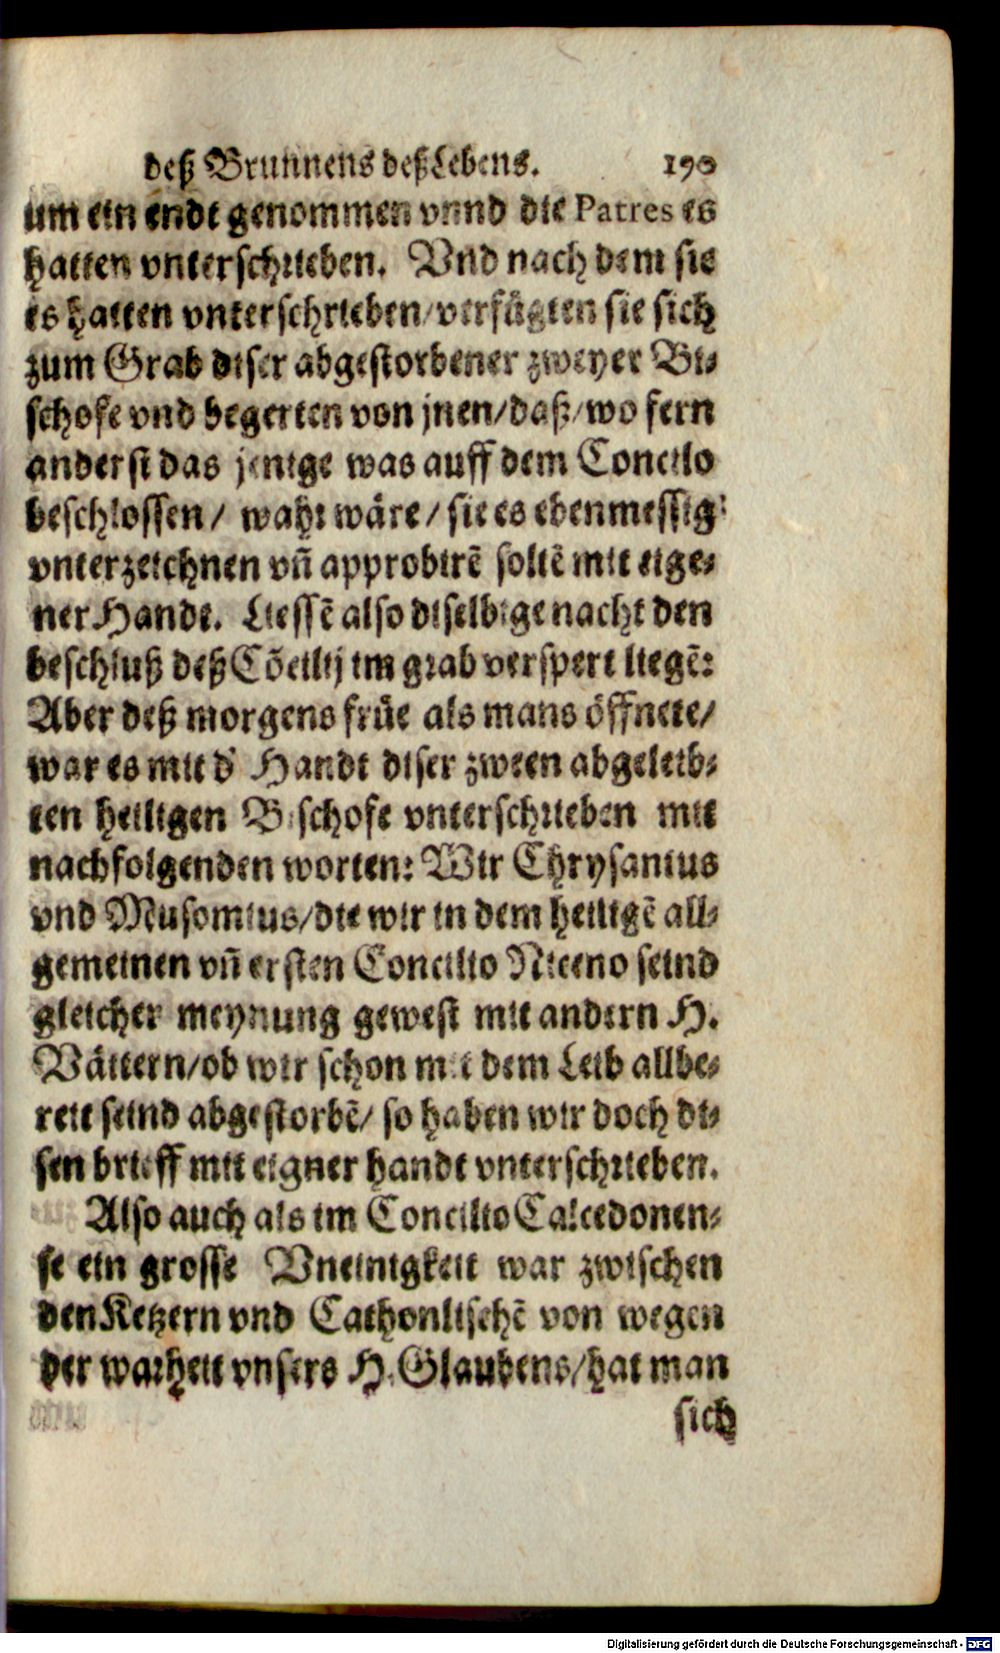 deß Brunnens deß Lebens. 190
um ein endt genommen vnnd die Patres es
hatten vnterschrieben. Vnd nach dem sie
es hatten vnterschrieben/verfügten sie sich
zum Grab diser abgestorbener zweyer Bi-
schofe vnd begerten von jnen/daß/wo fern
anderst das jenige was auff dem Concilo
beschlossen/ wahr wäre/sie es ebenmessig
vnterzeichnen vñ approbirē soltē mit eige-
ner Handt. Liessē also diselbige nacht den
beschluß deß Cōcilij im grab verspert liegē:
Aber deß morgens früe als mans öffnete/
war es mit d' Handt diser zween abgeleib-
ten heiligen Bischofe vnterschrieben mit
nachfolgenden worten: Wir Chrysantus
vnd Musomius/die wir in dem heiligē all-
gemeinen vñ ersten Concilio Niceno seind
gleicher meynung gewest mit andern H.
Vättern/ob wir schon mit dem Leib allbe-
reit seind abgestorbē/ so haben wir doch di-
sen brieff mit eigner handt vnterschrieben.
Also auch als im Concilio Calcedonen-
se ein grosse Vneinigkeit war zwischen
den Ketzern vnd Cathonlischē von wegen
der warheit vnsers H. Glaubens/hat man
sich
Digitalisierung gefördert durch die Deutsche Forschungsgemeinschaft - DFG